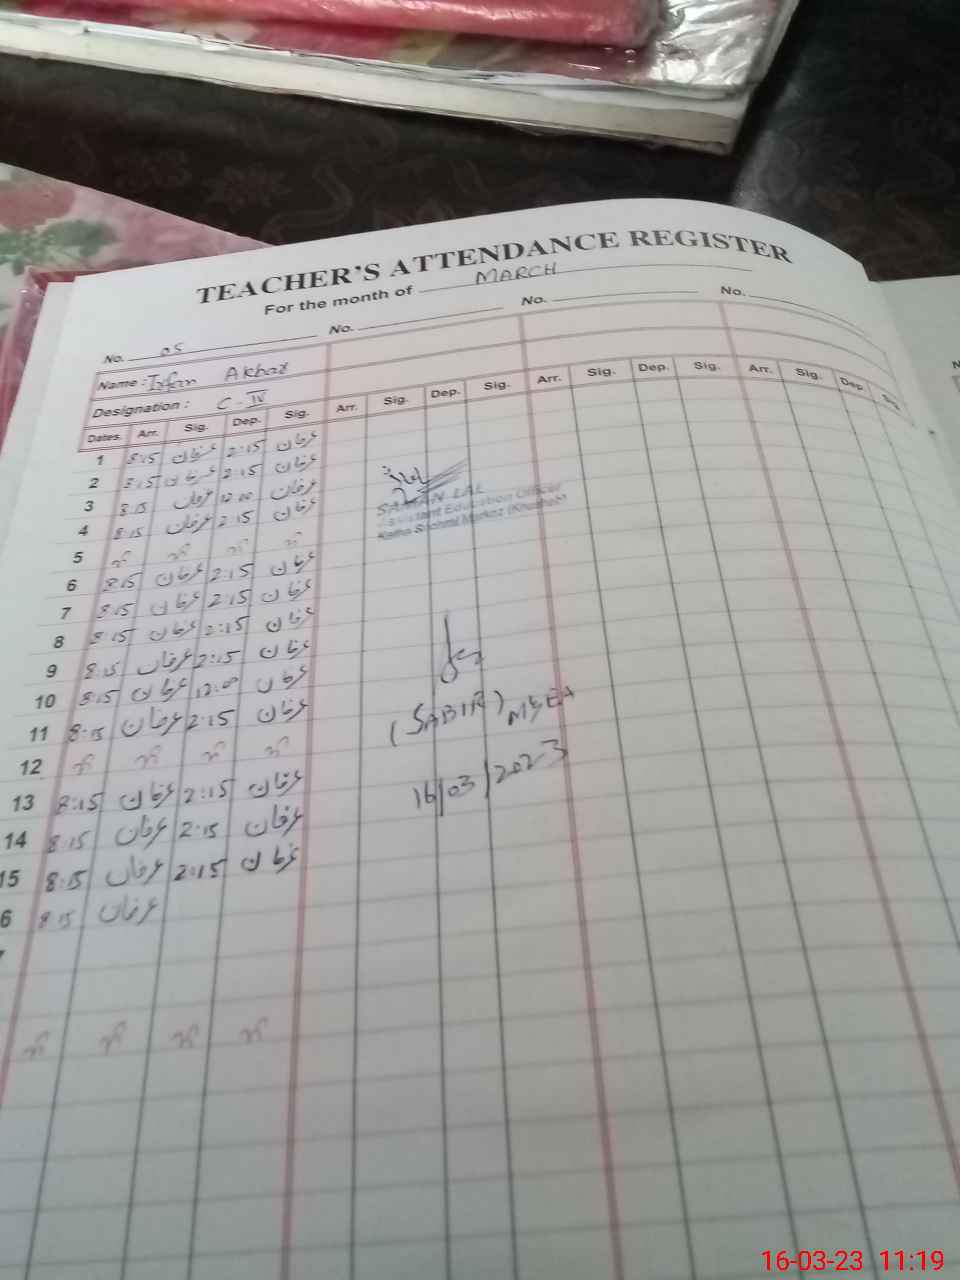 TEACHER'S ATTENDANCE REGISTER
For the month of MARCH
No. 05 No. No. No.
Name : Irfan Akbar
Designation : C-IV
Dates. Arr. Sig. Dep. Sig. Arr. Sig. Dep. Sig. Arr. Sig. Dep. Sig. Arr. Sig. Dep. Sig.
1 8:15 عرفان 2:15 عرفان
2 8:15 عرفان 2:15 عرفان
3 8:15 عرفان 12:00 عرفان
4 8:15 عرفان 2:15 عرفان
5
6 8:15 عرفان 2:15 عرفان
7 8:15 عرفان 2:15 عرفان
8 8:15 عرفان 2:15 عرفان
9 8:15 عرفان 2:15 عرفان
10 8:15 عرفان 12:00 عرفان
11 8:15 عرفان 2:15 عرفان
12
13 8:15 عرفان 2:15 عرفان
14 8:15 عرفان 2:15 عرفان
15 8:15 عرفان 2:15 عرفان
6 8:15 عرفان
SAMAN LAL
Assistant Education Officer
Markaz (Khushab)
(SABIR) MEA
16/03/2023
16-03-23 11:19